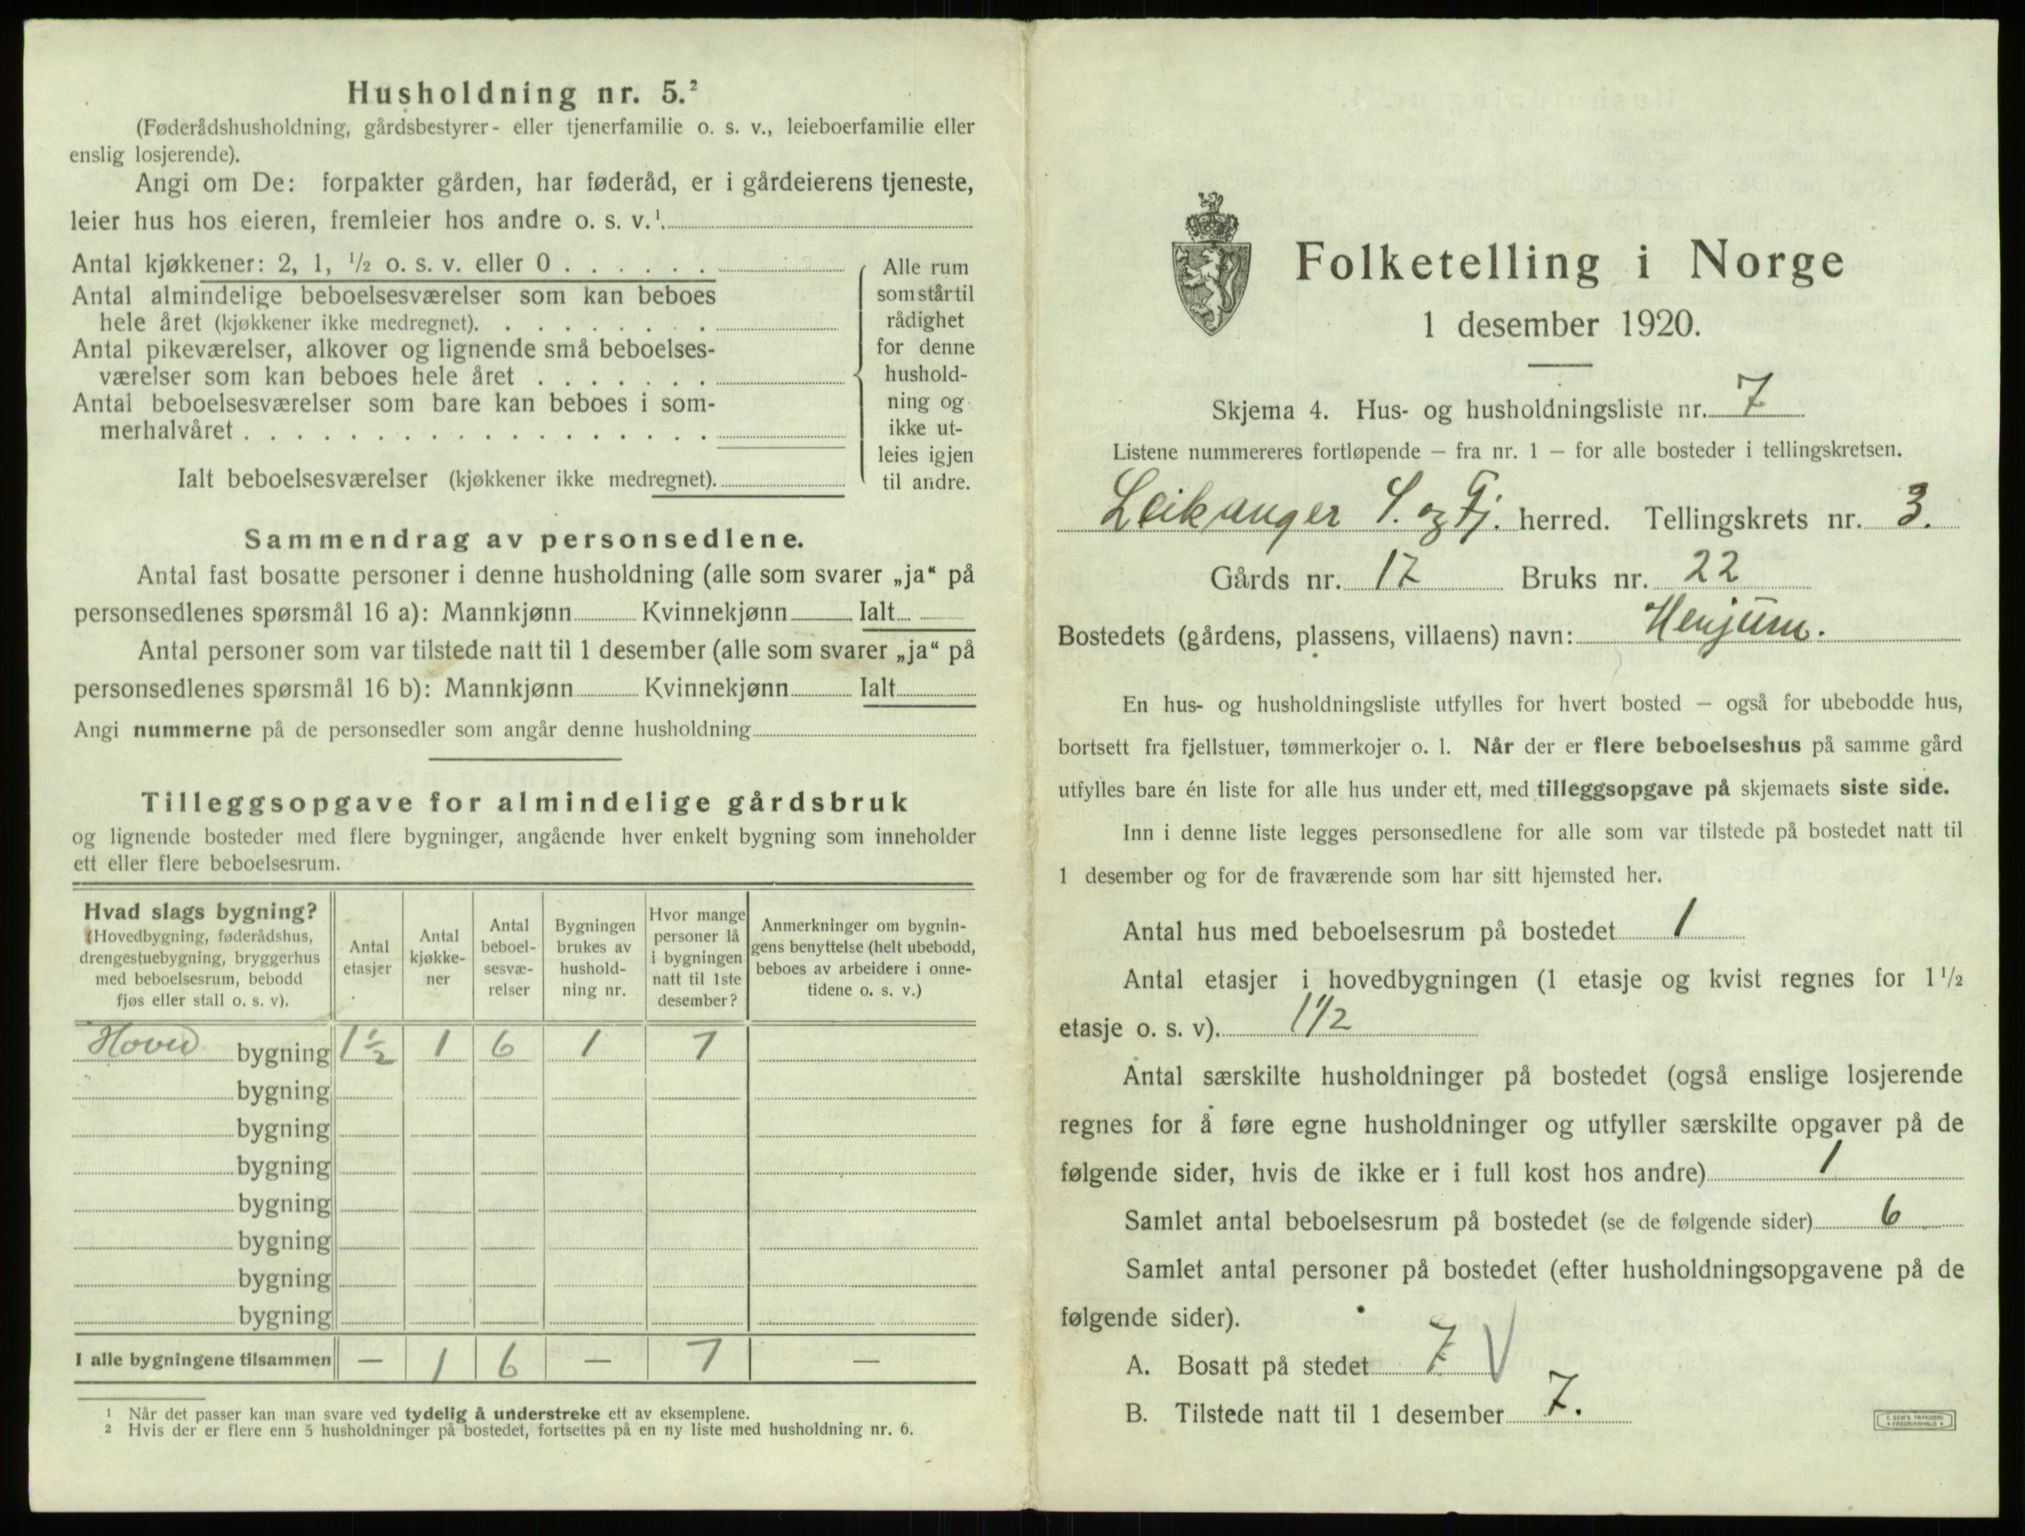 Husholdning nr. 5.²
(Føderådshusholdning, gårdsbestyrer- eller tjenerfamilie o. s. v., leieboerfamilie eller
enslig losjerende).
Angi om De: forpakter gården, har føderåd, er i gårdeierens tjeneste,
leier hus hos eieren, fremleier hos andre o. s. v.¹
Antal kjøkkener: 2, 1, ½ o. s. v. eller 0 . . . . . .
Antal almindelige beboelsesværelser som kan beboes
hele året (kjøkkener ikke medregnet). . . . . . . . .
Antal pikeværelser, alkover og lignende små beboelses-
værelser som kan beboes hele året . . . . . . .
Antal beboelsesværelser som bare kan beboes i som-
merhalvåret . . . . . . . . . . . . . . . . . .
Ialt beboelsesværelser (kjøkkener ikke medregnet).
Alle rum
som står til
rådighet
for denne
hushold-
ning og
ikke ut-
leies igjen
til andre.
Sammendrag av personsedlene.
Antal fast bosatte personer i denne husholdning (alle som svarer „ja“ på
personsedlenes spørsmål 16 a): Mannkjønn Kvinnekjønn Ialt
Antal personer som var tilstede natt til 1 desember (alle som svarer „ja“ på
personsedlenes spørsmål 16 b): Mannkjønn Kvinnekjønn Ialt
Angi nummerne på de personsedler som angår denne husholdning
Tilleggsopgave for almindelige gårdsbruk
og lignende bosteder med flere bygninger, angående hver enkelt bygning som inneholder
ett eller flere beboelsesrum.
Hvad slags bygning?
(Hovedbygning, føderådshus,
drengestuebygning, bryggerhus
med beboelsesrum, bebodd
fjøs eller stall o. s. v).
Antal
etasjer
Antal
kjøkke-
ner
Antal
beboel-
sesvæ-
relser
Bygningen
brukes av
hushold-
ning nr.
Hvor mange
personer lå
i bygningen
natt til 1ste
desember?
Anmerkninger om bygnin-
gens benyttelse (helt ubebodd,
beboes av arbeidere i onne-
tidene o. s. v.)
Hoved bygning 1½ 1 6 1 7
bygning
bygning
bygning
bygning
bygning
bygning
bygning
I alle bygningene tilsammen — 1 6 — 7 —
¹ Når det passer kan man svare ved tydelig å understreke ett av eksemplene.
² Hvis der er flere enn 5 husholdninger på bostedet, fortsettes på en ny liste med husholdning nr. 6.
Folketelling i Norge
1 desember 1920.
Skjema 4. Hus- og husholdningsliste nr. 7
Listene nummereres fortløpende — fra nr. 1 — for alle bosteder i tellingskretsen.
Leikanger S. og Fj. herred. Tellingskrets nr. 3.
Gårds nr. 17 Bruks nr. 22
Bostedets (gårdens, plassens, villaens) navn: Henjum.
En hus- og husholdningsliste utfylles for hvert bosted — også for ubebodde hus,
bortsett fra fjellstuer, tømmerkojer o. l. Når der er flere beboelseshus på samme gård
utfylles bare én liste for alle hus under ett, med tilleggsopgave på skjemaets siste side.
Inn i denne liste legges personsedlene for alle som var tilstede på bostedet natt til
1 desember og for de fraværende som har sitt hjemsted her.
Antal hus med beboelsesrum på bostedet 1
Antal etasjer i hovedbygningen (1 etasje og kvist regnes for 1½
etasje o. s. v). 1½
Antal særskilte husholdninger på bostedet (også enslige losjerende
regnes for å føre egne husholdninger og utfyller særskilte opgaver på de
følgende sider, hvis de ikke er i full kost hos andre) 1
Samlet antal beboelsesrum på bostedet (se de følgende sider) 6
Samlet antal personer på bostedet (efter husholdningsopgavene på de
følgende sider).
A. Bosatt på stedet 7 V
B. Tilstede natt til 1 desember 7.
E. SEM'S TRYKKERI
FREDRIKSHALD